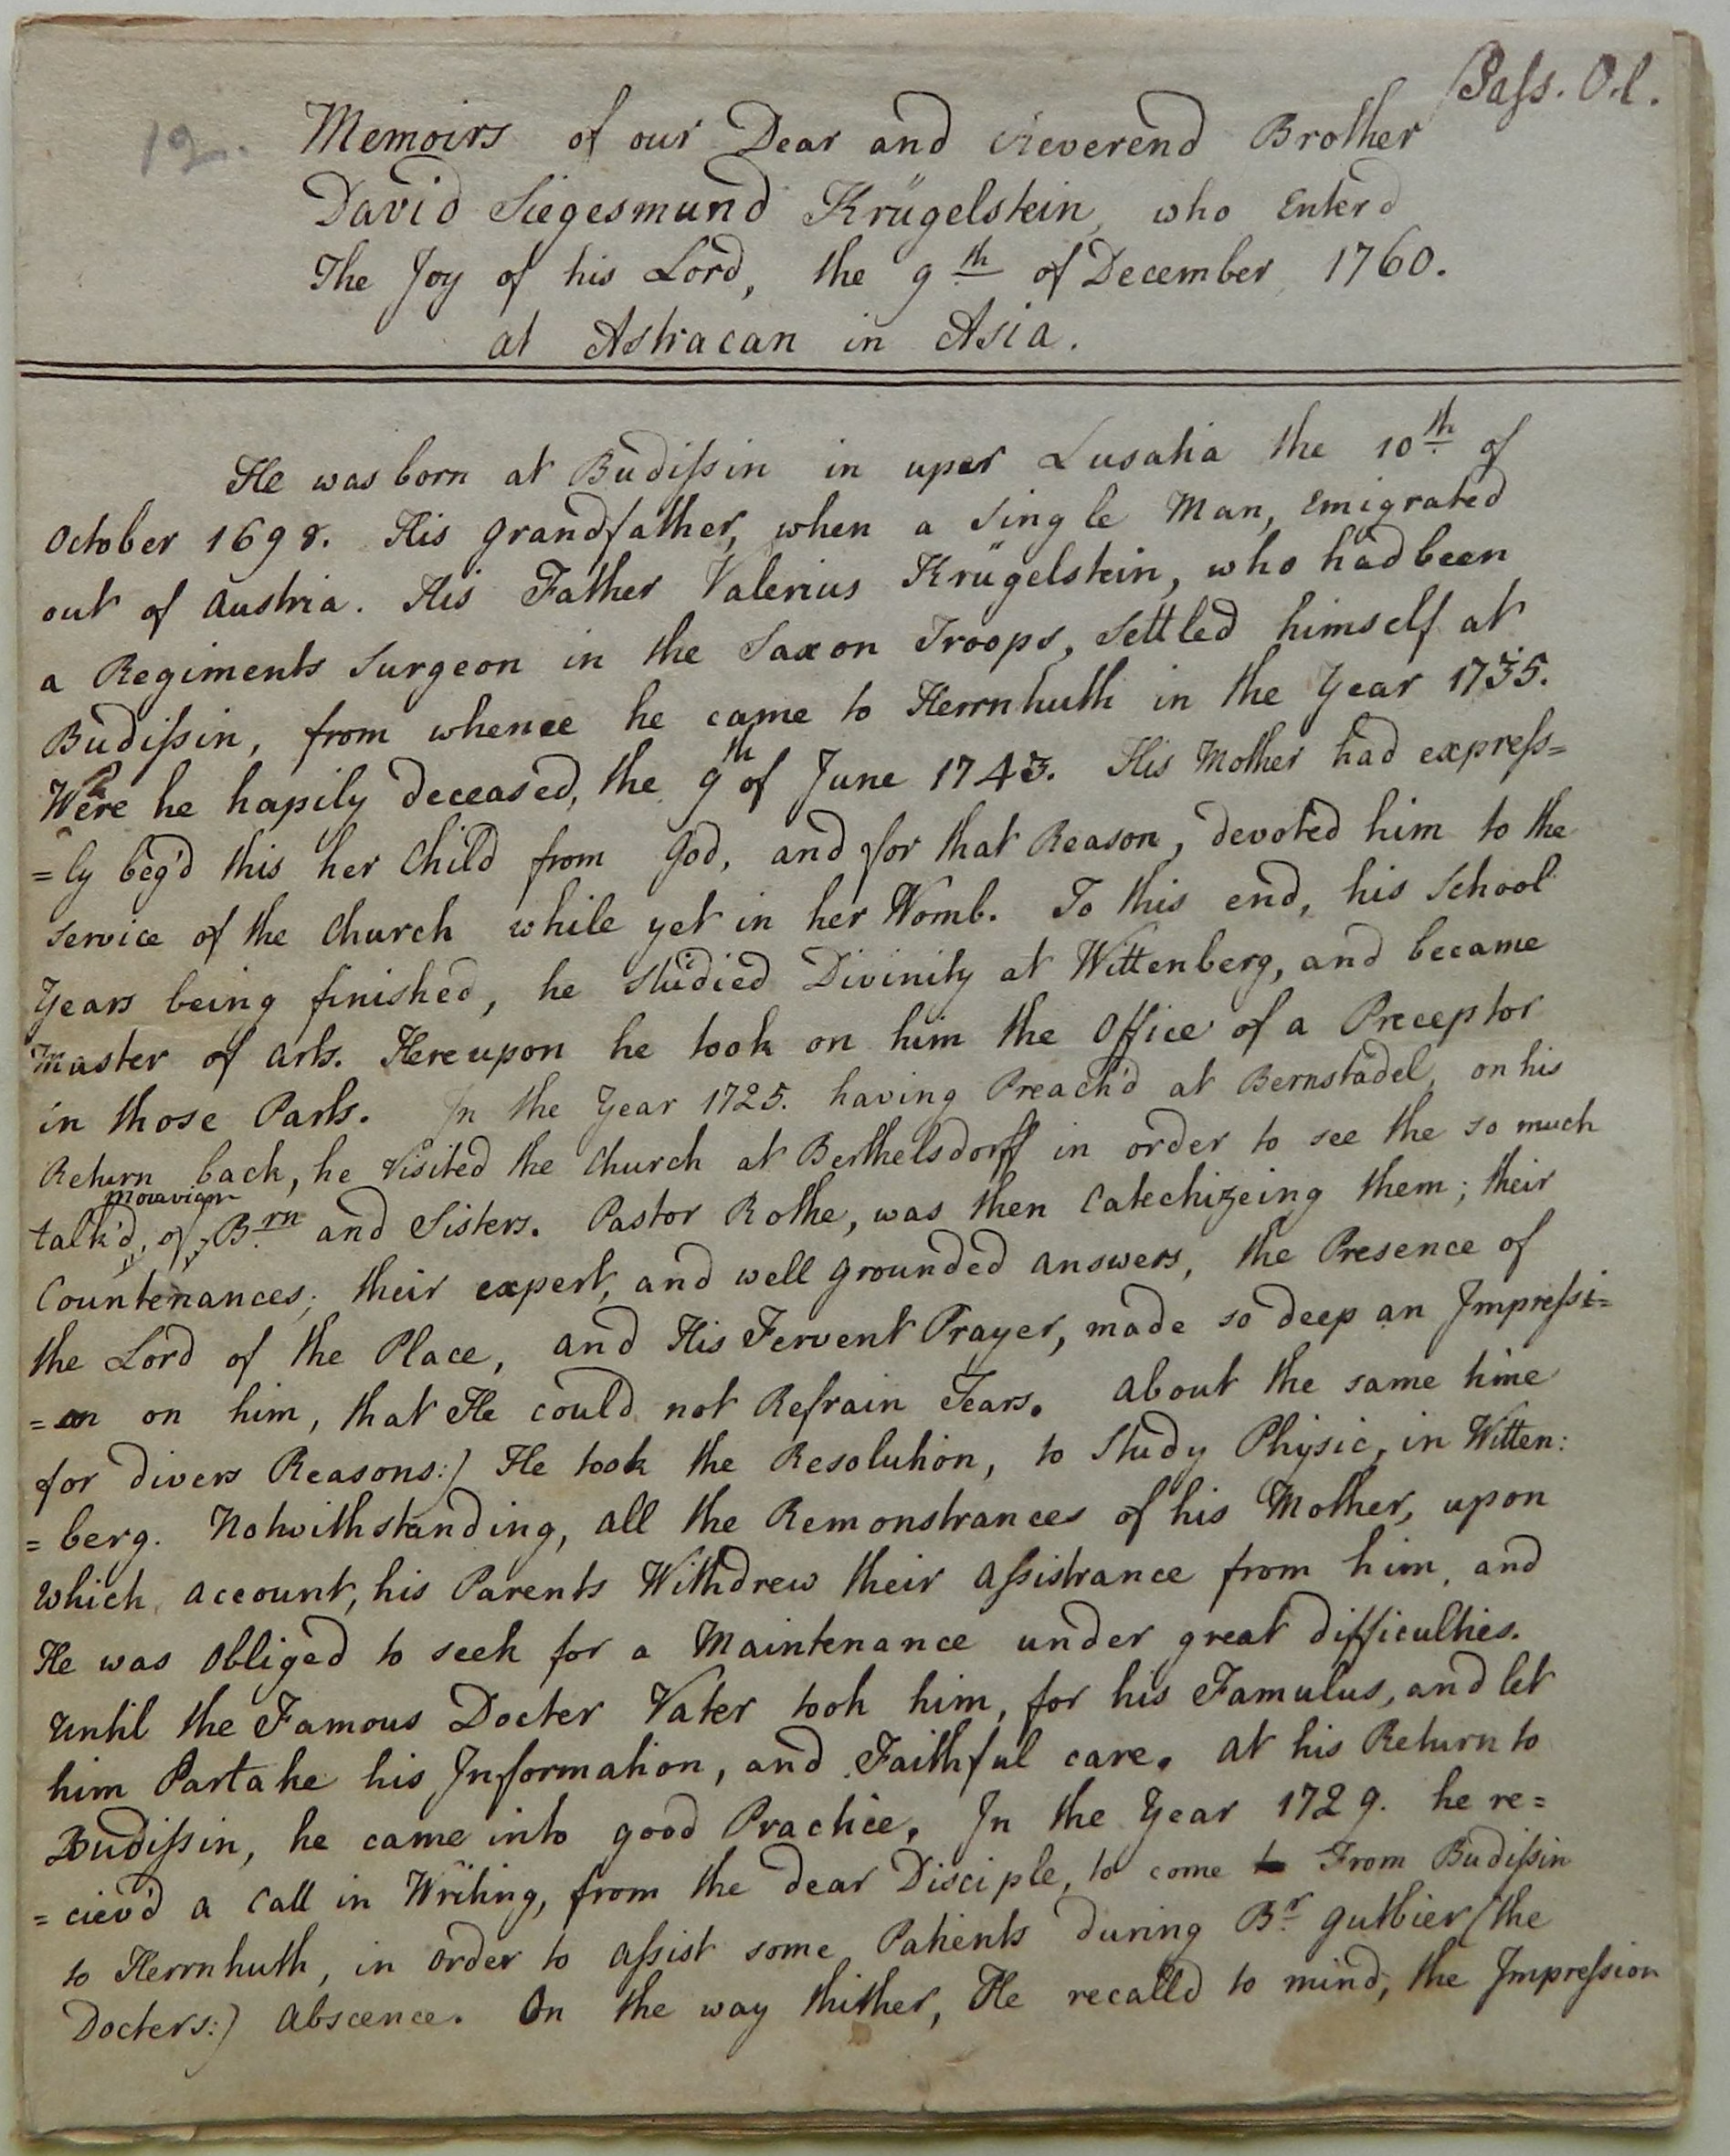 Pass. O.l.
12.
Memoirs of our Dear and Reverend Brother
David Siegesmund Krügelstein, who Enterd
The Joy of his Lord, the 9th of December 1760.
at Astracan in Asia.
He was born at Budißin in uper Lusatia the 10th of
October 1698. His grandfather, when a Single Man, Emigrated
out of Austria. His Father Valerius Krügelstein, who had been
a Regiments Surgeon in the Saxon Troops, Settled himself at
Budißin, from whence he came to Herrnhuth in the Year 1735.
Were he hapily deceased, the 9th of June 1743. His Mother had expreß=
=ly beg'd this her Child from God, and for that Reason, devoted him to the
Service of the Church while yet in her Womb. To this end, his School
Years being finished, he studied Divinity at Wittenberg, and became
Master of Arts. Hereupon he took on him the Office of a Preceptor
in those Parts. In the Year 1725. having Preach'd at Bernstadel, on his
Return back, he Visited the Church at Berthelsdorff in order to see the so much
Moravian
talk'd, of Brn and Sisters. Pastor Rothe, was then Catechizeing them; their
Countenances; their expert, and well grounded answers, the Presence of
the Lord of the Place, and His Fervent Prayer, made so deep an Impreßi=
=on on him, that He could not Refrain Tears. About the same time
for divers Reasons:) He took the Resolution, to Study Physic, in Witten:
=berg. Notwithstanding, all the Remonstrances of his Mother, upon
which account, his Parents Withdrew their Aßistrance from him, and
He was Obliged to seek for a Maintenance under great difficulties.
Until the Famous Docter Vater took him, for his Famulus, and let
him Partake his Information, and Faithful care. At his Return to
Budißin, he came into good Practice. In the Year 1729. he re=
=ciev'd a Call in Writing, from the dear Disciple, to come to From Budißin
to Herrnhuth, in Order to Aßist some Patients during Br. Gutbier (the
Docters:) Abscence. On the way thither, He recalld to mind, the Impreßion